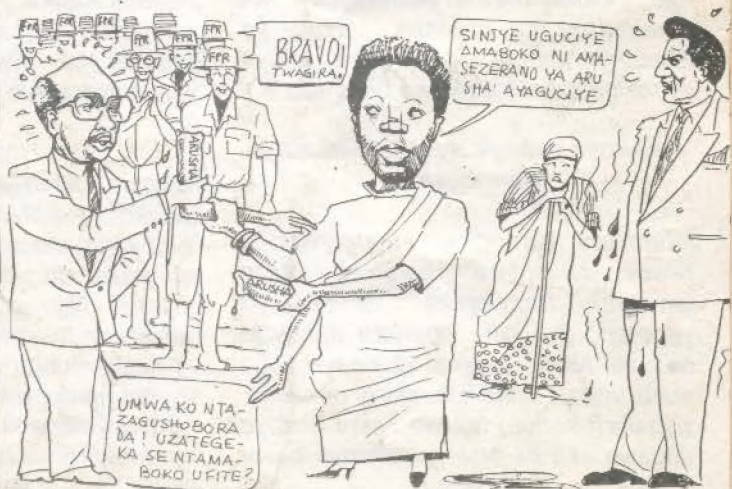 FPR
FPR
FPR
FPR
FPR
FPR
FPR
BRAVO!
TWAGIRA.
SINJYE UGUCIYE
AMABOKO NI AMA-
SEZERANO YA ARU
SHA' AYAGUCIYE
ARUSHA
ARUSHA
UMWAKO NTA-
ZAGUSHOBORA
DA! UZATEGE-
KA SE NTAMA-
BOKO UFITE?